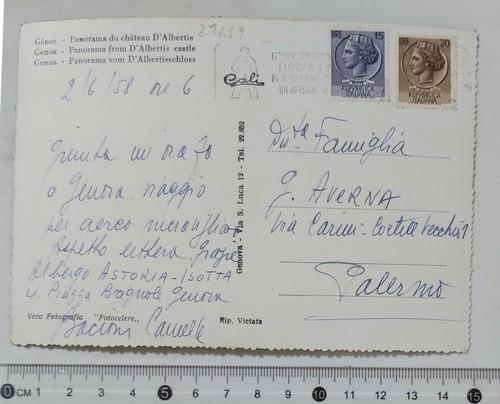 29659
Gênes - Panorama du château D'Albertis
Genoa - Panorama from D'Albertis castle
Genua - Panorama vom D'Albertisschloss
Cali
LIRE 15
REPUBBLICA ITALIANA
LIRE 20
REPUBBLICA ITALIANA
2/6/58 ore 6
Giunta un'ora fa
a Genova. viaggio
per aereo meraviglioso
aspetto lettera. Grazie
Albergo ASTORIA-ISOTTA
4. Piazza Brignole Genova
Bacioni
Genova - Via S. Luca 12 - Tel. 22.852
Famiglia
G. AVERNA
Via Carini - Cortile Vecchio
Palermo
Vera Fotografia "Fotocelere„
Rip. Vietata
0 CM 1 2 3 4 5 6 7 8 9 10 11 12 13 14 15